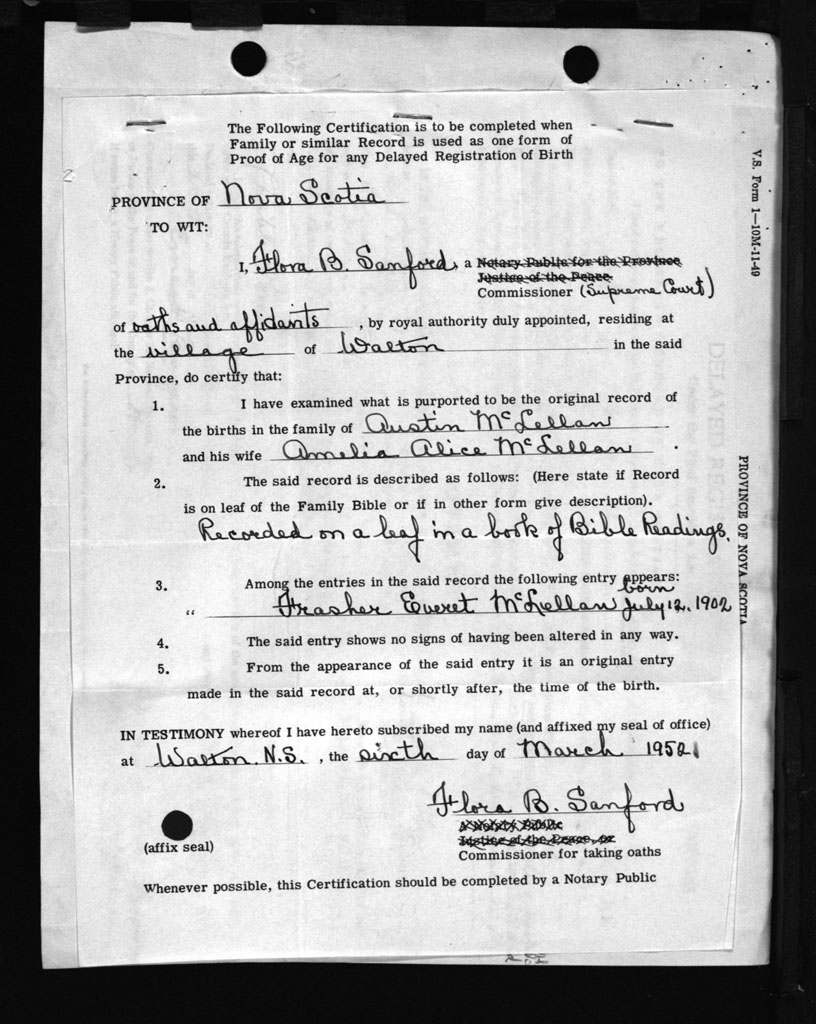 The Following Certification is to be completed when
Family or similar Record is used as one form of
Proof of Age for any Delayed Registration of Birth
PROVINCE OF Nova Scotia
TO WIT:
I, Flora B. Sanford, a Notary Public for the Province
Justice of the Peace
Commissioner (Supreme Court)
of oaths and affidavits, by royal authority duly appointed, residing at
the village of Walton in the said
Province, do certify that:
1. I have examined what is purported to be the original record of
the births in the family of Austin McLellan
and his wife Amelia Alice McLellan.
2. The said record is described as follows: (Here state if Record
is on leaf of the Family Bible or if in other form give description).
Recorded on a leaf in a book of Bible Readings.
3. Among the entries in the said record the following entry appears:
" Frasher Everet McLellan born July 12, 1902
4. The said entry shows no signs of having been altered in any way.
5. From the appearance of the said entry it is an original entry
made in the said record at, or shortly after, the time of the birth.
IN TESTIMONY whereof I have hereto subscribed my name (and affixed my seal of office)
at Walton, N.S., the sixth day of March 1952
Flora B. Sanford
A Notary Public
Justice of the Peace, or
(affix seal)
Commissioner for taking oaths
Whenever possible, this Certification should be completed by a Notary Public
V.S. Form 1—10M-11-49
PROVINCE OF NOVA SCOTIA